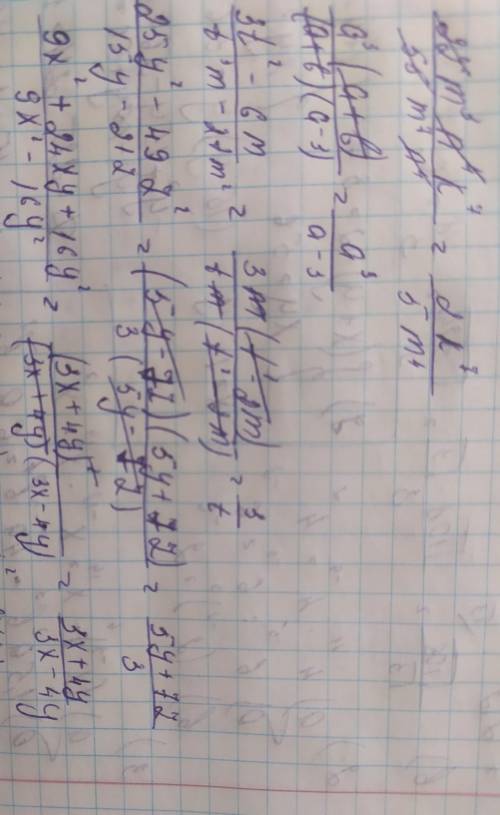 m³ n⁴ k⁷ / 55 m⁷ n⁴ = 2 k⁷ / 5 m⁴
a³ (a+b) / (a+b)(a-3) = a³ / a-3
3t² - 6m / t³m - 2tm² = 3m (t² - 2m) / tm (t² - 2m) = 3 / t
25y² - 49z² / 15y - 21z = (5y - 7z)(5y + 7z) / 3 (5y - 7z) = 5y + 7z / 3
9x² + 24xy + 16y² / 9x² - 16y² = (3x + 4y)² / (3x + 4y)(3x - 4y) = 3x + 4y / 3x - 4y